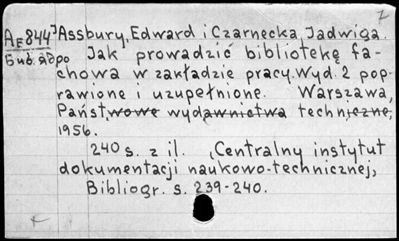 AE844 Assbury, Edward i Czarnecka, Jadwiga.
Jak prowadzić bibliotekę fa-
chowa w zakładzie pracy. Wyd. 2 pop-
rawione i uzupełnione. Warszawa,
Państwowe wydawnictwa techniczne,
1956.
240 s. z il. (Centralny instytut
dokumentacji naukowo-technicznej)
Bibliogr. s. 239-240.